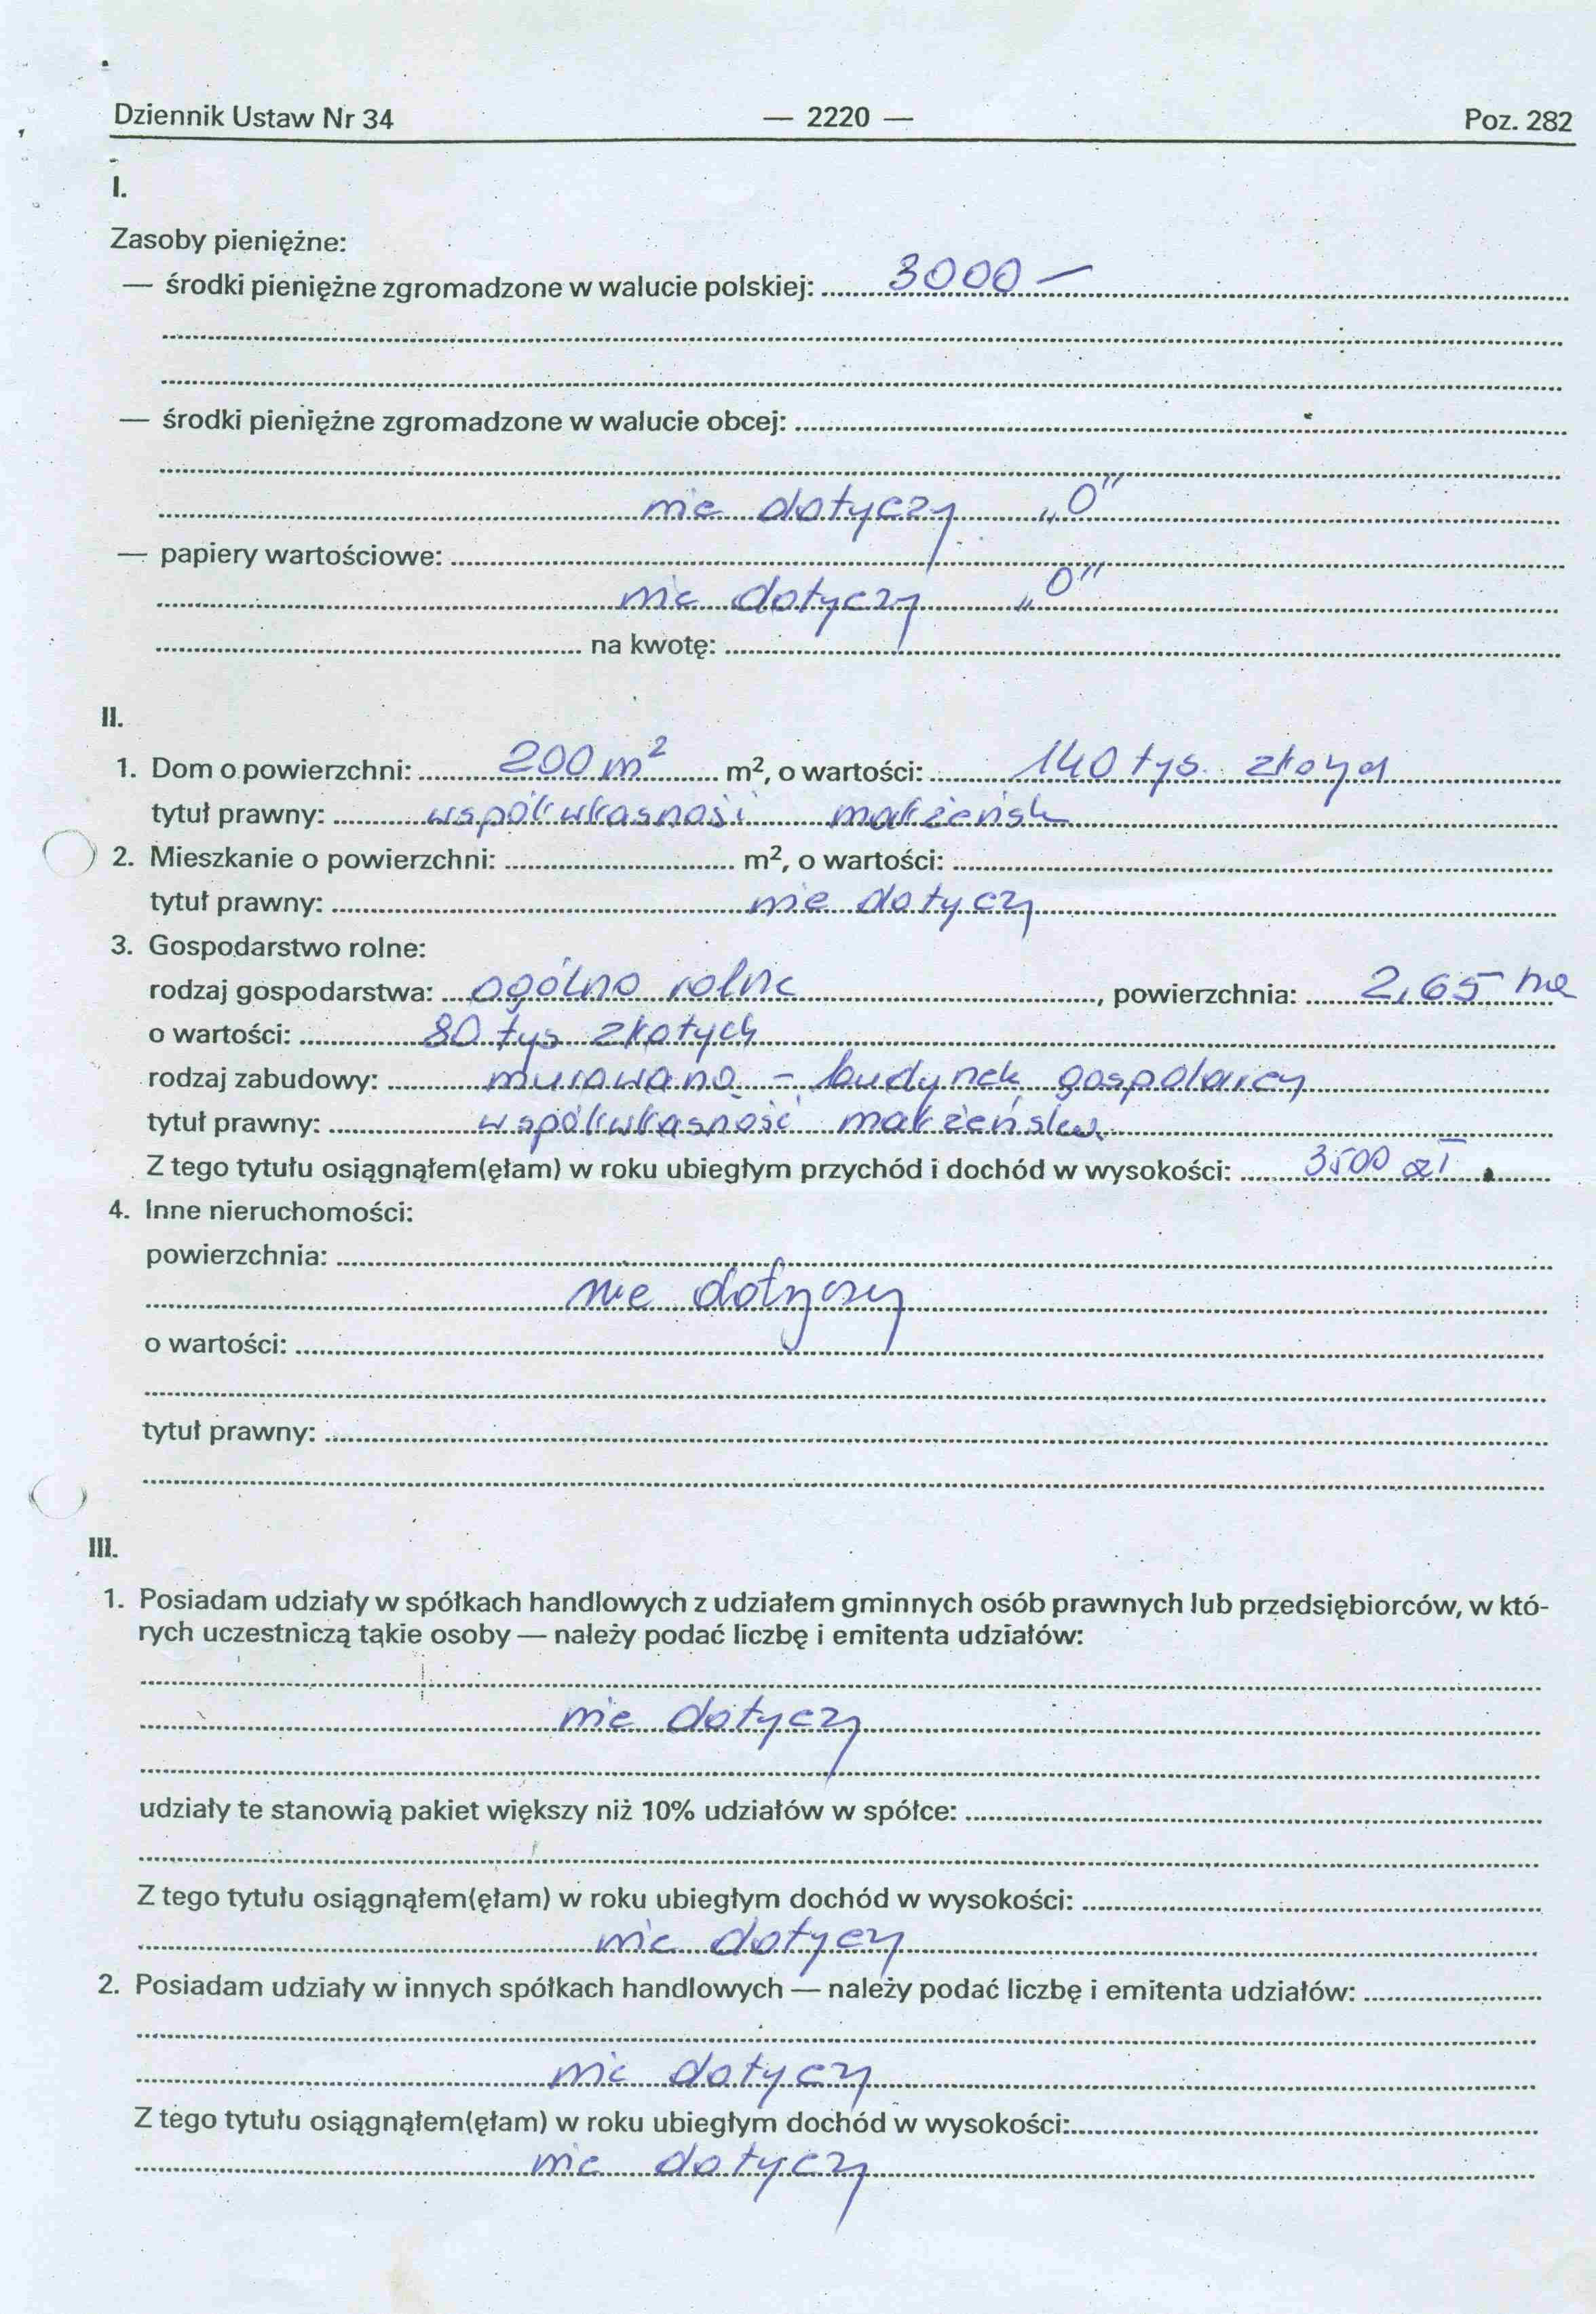 Dziennik Ustaw Nr 34 — 2220 — Poz. 282
I.
Zasoby pieniężne:
— środki pieniężne zgromadzone w walucie polskiej: 3000 —
— środki pieniężne zgromadzone w walucie obcej:
nie dotyczy „0"
— papiery wartościowe:
nie dotyczy „0"
na kwotę:
II.
1. Dom o powierzchni: 200 m² m², o wartości: 140 tys. złotych
tytuł prawny: współwłasność małżeńsk
2. Mieszkanie o powierzchni: m², o wartości:
tytuł prawny: nie dotyczy
3. Gospodarstwo rolne:
rodzaj gospodarstwa: ogólno rolne, powierzchnia: 2,65 ha
o wartości: 80 tys złotych
rodzaj zabudowy: murowana – budynek gospodarczy
tytuł prawny: współwłasność małżeńska
Z tego tytułu osiągnąłem(ęłam) w roku ubiegłym przychód i dochód w wysokości: 3500 zł
4. Inne nieruchomości:
powierzchnia:
nie dotyczy
o wartości:
tytuł prawny:
III.
1. Posiadam udziały w spółkach handlowych z udziałem gminnych osób prawnych lub przedsiębiorców, w któ-
rych uczestniczą takie osoby — należy podać liczbę i emitenta udziałów:
nie dotyczy
udziały te stanowią pakiet większy niż 10% udziałów w spółce:
Z tego tytułu osiągnąłem(ęłam) w roku ubiegłym dochód w wysokości:
nie dotyczy
2. Posiadam udziały w innych spółkach handlowych — należy podać liczbę i emitenta udziałów:
nie dotyczy
Z tego tytułu osiągnąłem(ęłam) w roku ubiegłym dochód w wysokości:
nie dotyczy